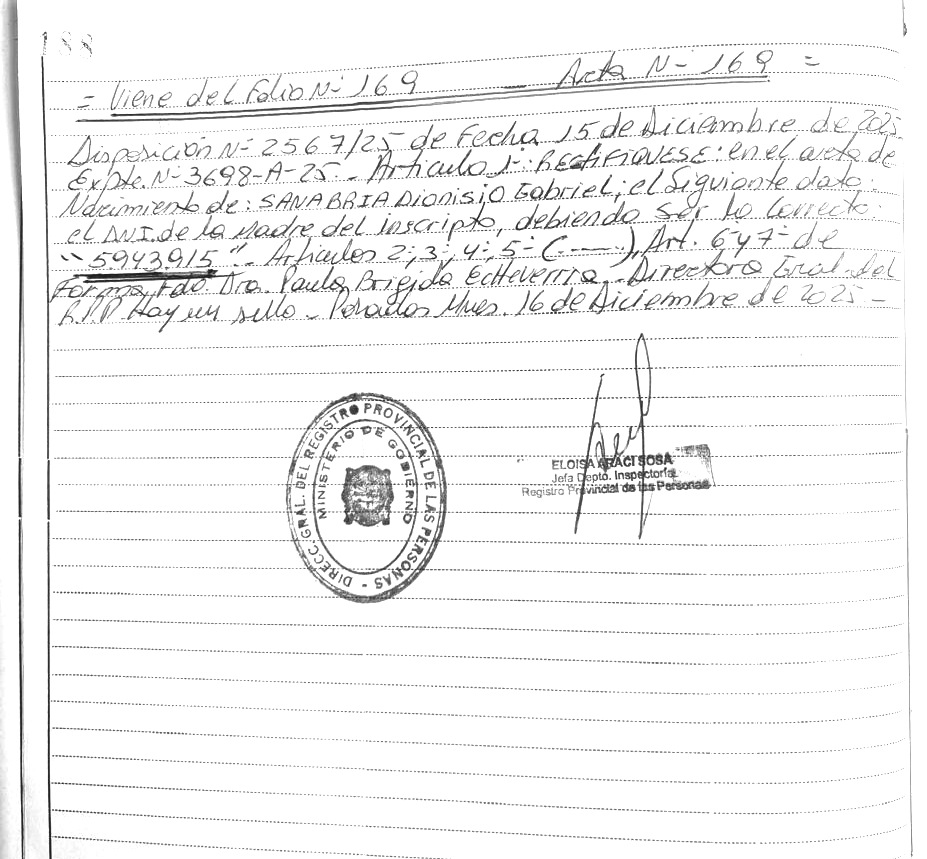 188
= Viene del Folio N- 169 Acta N- 169 =
Disposición N- 2567/25 de Fecha 15 de Diciembre de 2025
Expte. N- 3698-A-25- Artículo 1-: RECTIFIQUESE: en el acta de
Nacimiento de: SANABRIA Dionisio Gabriel, el Siguiente dato:
el DNI. de la Madre del inscripto, debiendo ser lo Correcto:
"5943915"- Artículos 2-; 3-; 4-; 5- (------), Art. 6- y 7- de
Forma, Fdo Dra. Paula Brigida Echeverria - Directora Gral. del
R.P.P Hay un sello - Posadas Mnes. 16 de Diciembre de 2025 -
DIRECC. GRAL. DEL REGISTRO PROVINCIAL DE LAS PERSONAS -
MINISTERIO DE GOBIERNO
ELOISA ARACI SOSA
Jefa Depto. Inspectoría
Registro Provincial de las Personas